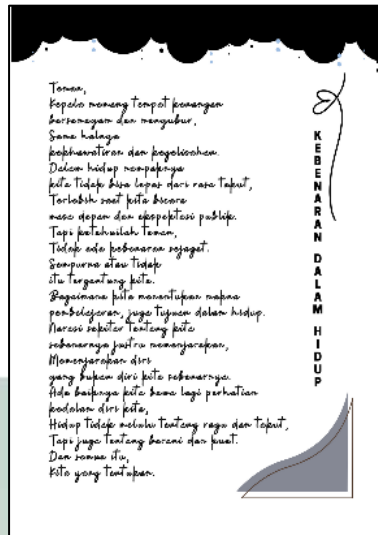 Teman,
Kepala memang tempat kenangan
bersemayam dan mengubur,
Sama halnya
kekhawatiran dan kegelisahan.
Dalam hidup nampaknya
kita tidak bisa lepas dari rasa takut,
Terlebih saat kita bicara
masa depan dan ekspektasi publik.
Tapi ketahuilah Teman,
Tidak ada kebenaran sejagat.
Sempurna atau tidak
itu tergantung kita.
Bagaimana kita menentukan makna
pembelajaran, juga tujuan dalam hidup.
Narasi sekitar tentang kita
sebenarnya justru memenjarakan,
Memenjarakan diri
yang bukan diri kita sebenarnya.
Ada baiknya kita bawa lagi perhatian
kedalam diri kita,
Hidup tidak melulu tentang ragu dan takut,
Tapi juga tentang berani dan kuat.
Dan semua itu,
Kita yang tentukan.
KEBENARAN DALAM HIDUP